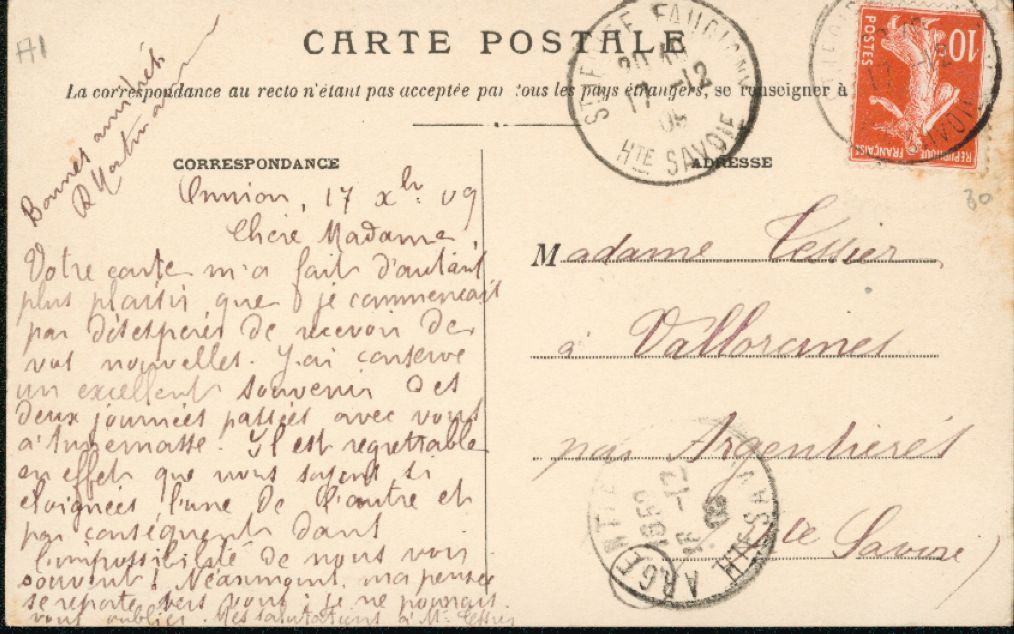 A1
CARTE POSTALE
La correspondance au recto n'étant pas acceptée par tous les pays étrangers, se renseigner à
CORRESPONDANCE
Onnion, 17 Xbr 09
Chère Madame,
Votre carte m'a fait d'autant
plus plaisir que je commençait
par désespérer de recevoir de
vos nouvelles. J'ai conservé
un excellent souvenir des
deux journées passées avec vous
à Annemasse. Il est regrettable
en effet que nous soyons si
éloignées l'une de l'autre et
par conséquent dans
l'impossibilité de nous voir
souvent! Néanmoins, ma pensée
se reporte vers vous; je ne pourrais
vous oublier. Mes salutations à Mr Tessier
Bonnes amitiés
ADRESSE
Madame Tessier
à Vallorcines
par Argentières
Hte Savoie
30
10
POSTES
REPUBLIQUE FRANÇAISE
FAUCIGNY
17 -12
09
HTE SAVOIE
-12
ARGE
HTE SA